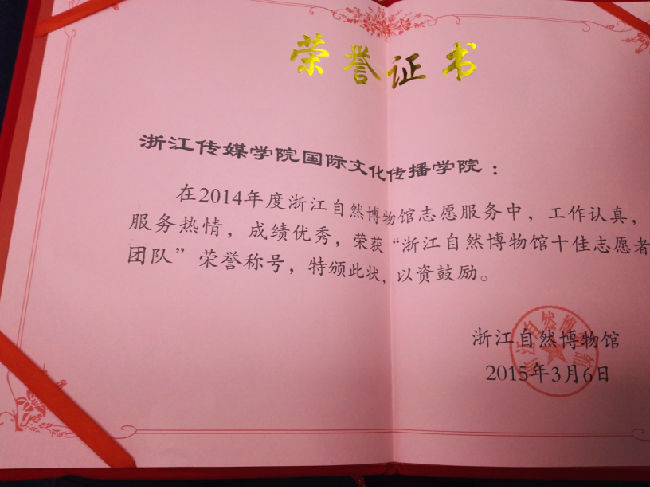 荣誉证书
浙江传媒学院国际文化传播学院：
在2014年度浙江自然博物馆志愿服务中，工作认真，
服务热情，成绩优秀，荣获“浙江自然博物馆十佳志愿者
团队”荣誉称号，特颁此状，以资鼓励。
浙江自然博物馆
2015年3月6日